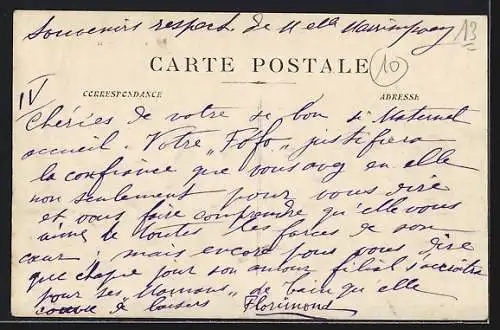 Souvenirs respect. de Melle
13
CARTE POSTALE
10
CORRESPONDANCE
ADRESSE
IV
Chéries de votre se bon si Maternel
accueil. Votre "Fofo" justifiera
la confiance que vous avez en elle
non seulement pour vous dire
et vous faire comprendre qu'elle vous
aime de toutes les forces de son
cœur; mais encore pour vous dire
que chaque jour son amour filial s'accroître
pour ses Mamans, de bain qu'elle
couvre de baisers Florimond